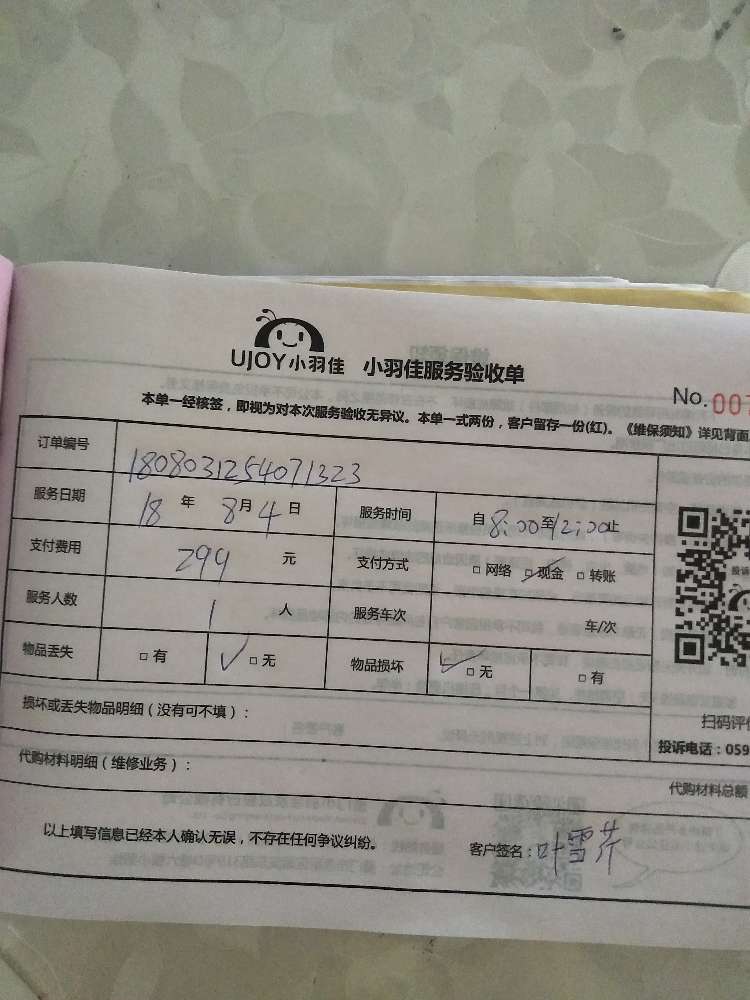 UJOY小羽佳 小羽佳服务验收单
No.007
本单一经核签，即视为对本次服务验收无异议。本单一式两份，客户留存一份(红)。《维保须知》详见背面
订单编号 1808031254071323
服务日期 18 年 8月 4 日 服务时间 自8:00至12:00止
支付费用 299 元 支付方式 □ 网络 □ 现金 □ 转账
服务人数 1 人 服务车次 车/次
物品丢失 □ 有 □ 无 物品损坏 □ 无 □ 有
损坏或丢失物品明细（没有可不填）：
扫码评价
投诉电话：059
代购材料明细（维修业务）：
代购材料总额
以上填写信息已经本人确认无误，不存在任何争议纠纷。 客户签名：叶雪芹